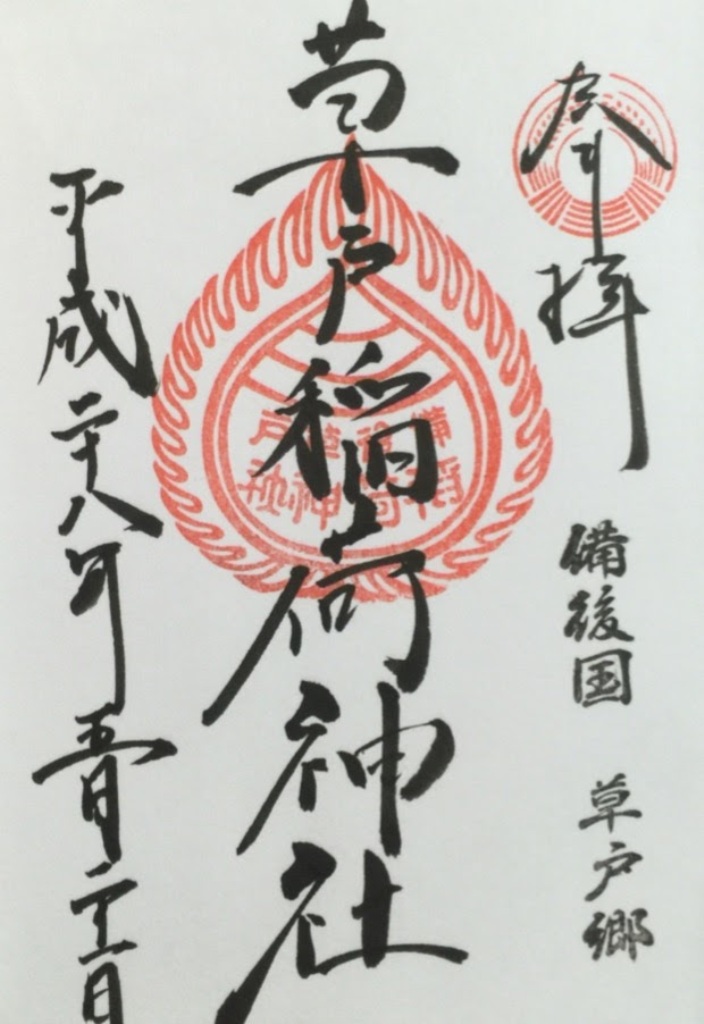 奉拝
備後国 草戸郷
草戸稲荷神社
備後草戸
稲荷神社
平成二十八年五月